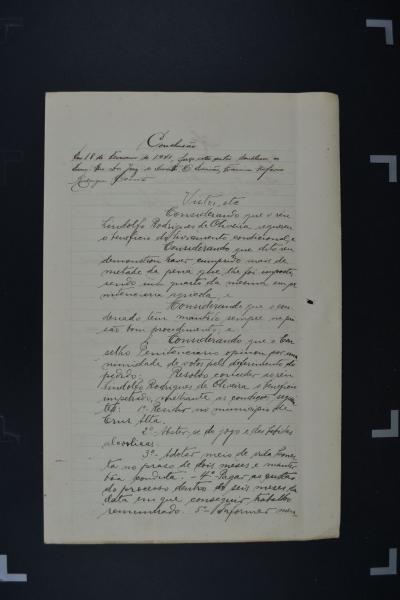 Conclusão
Em 18 de Fevereiro de 1941, faço estes autos conclusos ao
Exmo. Snr. Dr. Juiz de Direito. O Escrivão,
Vistos, etc
Considerando que o réu
Lindolfo Rodrigues de Oliveira requereu
o beneficio do livramento condicional; e
Considerando que dito réu
demonstrou haver cumprido mais de
metade da pena que lhe foi imposta,
sendo um quarto da mesma em pe
nitenciaria agricola, e
Considerando que o con
denado têm mantido sempre na pri
são bom procedimento; e
Considerando que o Con
selho Penitenciario opinou por una
nimidade de votos pelo deferimento do
pedido; Resolvo conceder ao réu
Lindolfo Rodrigues de Oliveira o beneficio
impetrado, mediante as condições seguin
tes: 1º- Residir no municipio de
Cruz Alta.
2º- Abster-se do jogo e das bebidas
alcoolicas.
3º- Adotar meio de vida hones
to no praso de dois meses e manter
bôa conduta. - 4º- Pagar as custas
do processo dentro de seis meses da
data em que conseguir trabalho
remunerado. 5º- Informar men